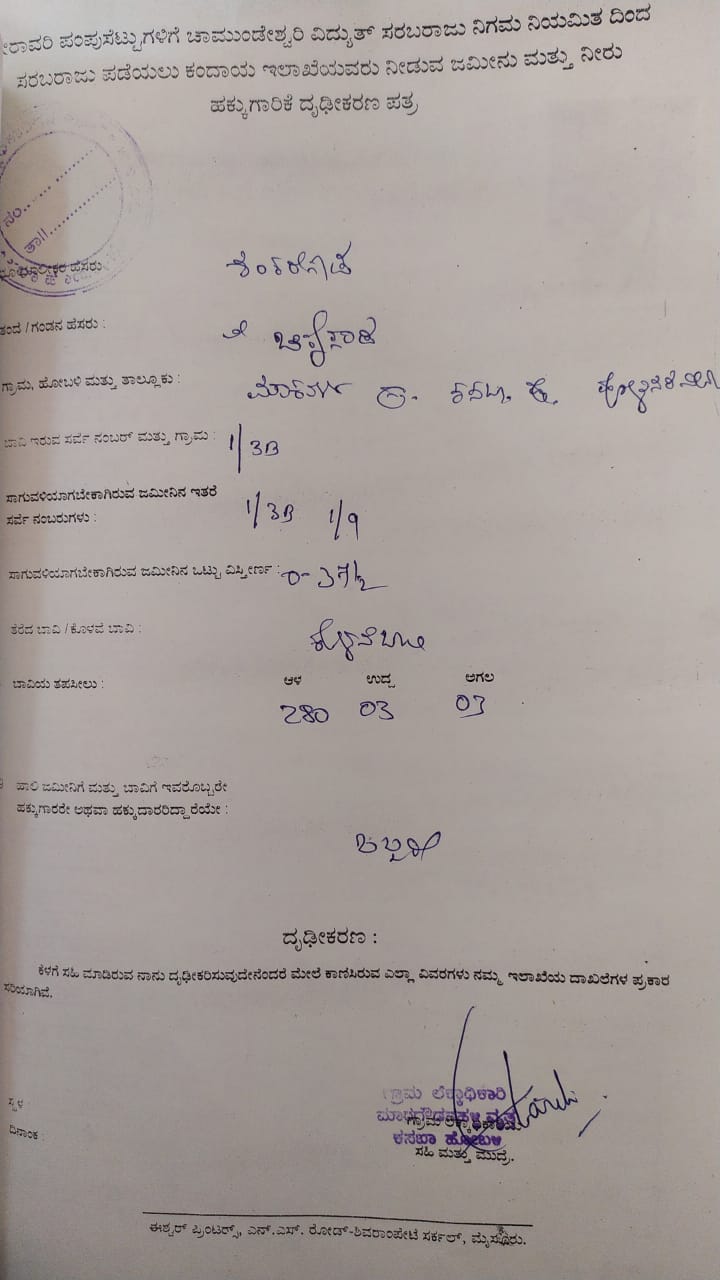 ನೀರಾವರಿ ಪಂಪುಸೆಟ್ಟುಗಳಿಗೆ ಚಾಮುಂಡೇಶ್ವರಿ ವಿದ್ಯುತ್ ಸರಬರಾಜು ನಿಗಮ ನಿಯಮಿತ ದಿಂದ
ಸರಬರಾಜು ಪಡೆಯಲು ಕಂದಾಯ ಇಲಾಖೆಯವರು ನೀಡುವ ಜಮೀನು ಮತ್ತು ನೀರು
ಹಕ್ಕುಗಾರಿಕೆ ದೃಢೀಕರಣ ಪತ್ರ
ನಂ..............
ತಾ॥..............
ಹೆಸರು
ತಂದೆ / ಗಂಡನ ಹೆಸರು :
ಗ್ರಾಮ, ಹೋಬಳಿ ಮತ್ತು ತಾಲ್ಲೂಕು : ಗ್ರಾ. ಕಸಬಾ
ಬಾವಿ ಇರುವ ಸರ್ವೆ ನಂಬರ್ ಮತ್ತು ಗ್ರಾಮ : 1/3B
ಸಾಗುವಳಿಯಾಗಬೇಕಾಗಿರುವ ಜಮೀನಿನ ಇತರೆ
ಸರ್ವೆ ನಂಬರುಗಳು : 1/3B 1/9
ಸಾಗುವಳಿಯಾಗಬೇಕಾಗಿರುವ ಜಮೀನಿನ ಒಟ್ಟು ವಿಸ್ತೀರ್ಣ : 0-37½
ತೆರೆದ ಬಾವಿ / ಕೊಳವೆ ಬಾವಿ : ಕೊಳವೆ ಬಾವಿ
ಬಾವಿಯ ತಪಸೀಲು : ಆಳ ಉದ್ದ ಅಗಲ
280 03 03
ಹಾಲಿ ಜಮೀನಿಗೆ ಮತ್ತು ಬಾವಿಗೆ ಇವರೊಬ್ಬರೇ
ಹಕ್ಕುಗಾರರೇ ಅಥವಾ ಹಕ್ಕುದಾರರಿದ್ದಾರೆಯೇ :
ಒಬ್ಬರೇ
ದೃಢೀಕರಣ :
ಕೆಳಗೆ ಸಹಿ ಮಾಡಿರುವ ನಾನು ದೃಢೀಕರಿಸುವುದೇನೆಂದರೆ ಮೇಲೆ ಕಾಣಿಸಿರುವ ಎಲ್ಲಾ ವಿವರಗಳು ನಮ್ಮ ಇಲಾಖೆಯ ದಾಖಲೆಗಳ ಪ್ರಕಾರ
ಸರಿಯಾಗಿವೆ.
ಗ್ರಾಮ ಲೆಕ್ಕಾಧಿಕಾರಿ
ಸ್ಥಳ :
ವೃತ್ತ
ಗ್ರಾಮ ಲೆಕ್ಕಾಧಿಕಾರಿಯ
ದಿನಾಂಕ :
ಕಸಬಾ ಹೋಬಳಿ
ಸಹಿ ಮತ್ತು ಮುದ್ರೆ.
ಈಶ್ವರ್ ಪ್ರಿಂಟರ್ಸ್, ಎನ್.ಎಸ್. ರೋಡ್-ಶಿವರಾಂಪೇಟೆ ಸರ್ಕಲ್, ಮೈಸೂರು.